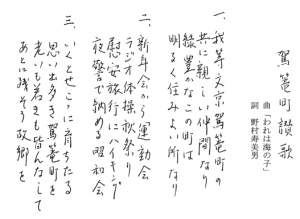 駕篭町讃歌
曲「われは海の子」
詞 野村寿美男
一、我等文京駕篭町の
共に親しい仲間なり
緑豊かなこの町は
明るく住みよい所なり
二、新年会から運動会
ラジオ体操秋祭り
慰安旅行にハイキング
夜警で納める昭和会
三、いくとせこゝに育ちたる
思い出多き駕篭町を
老いも若きも皆んなして
あとに残そう故郷を